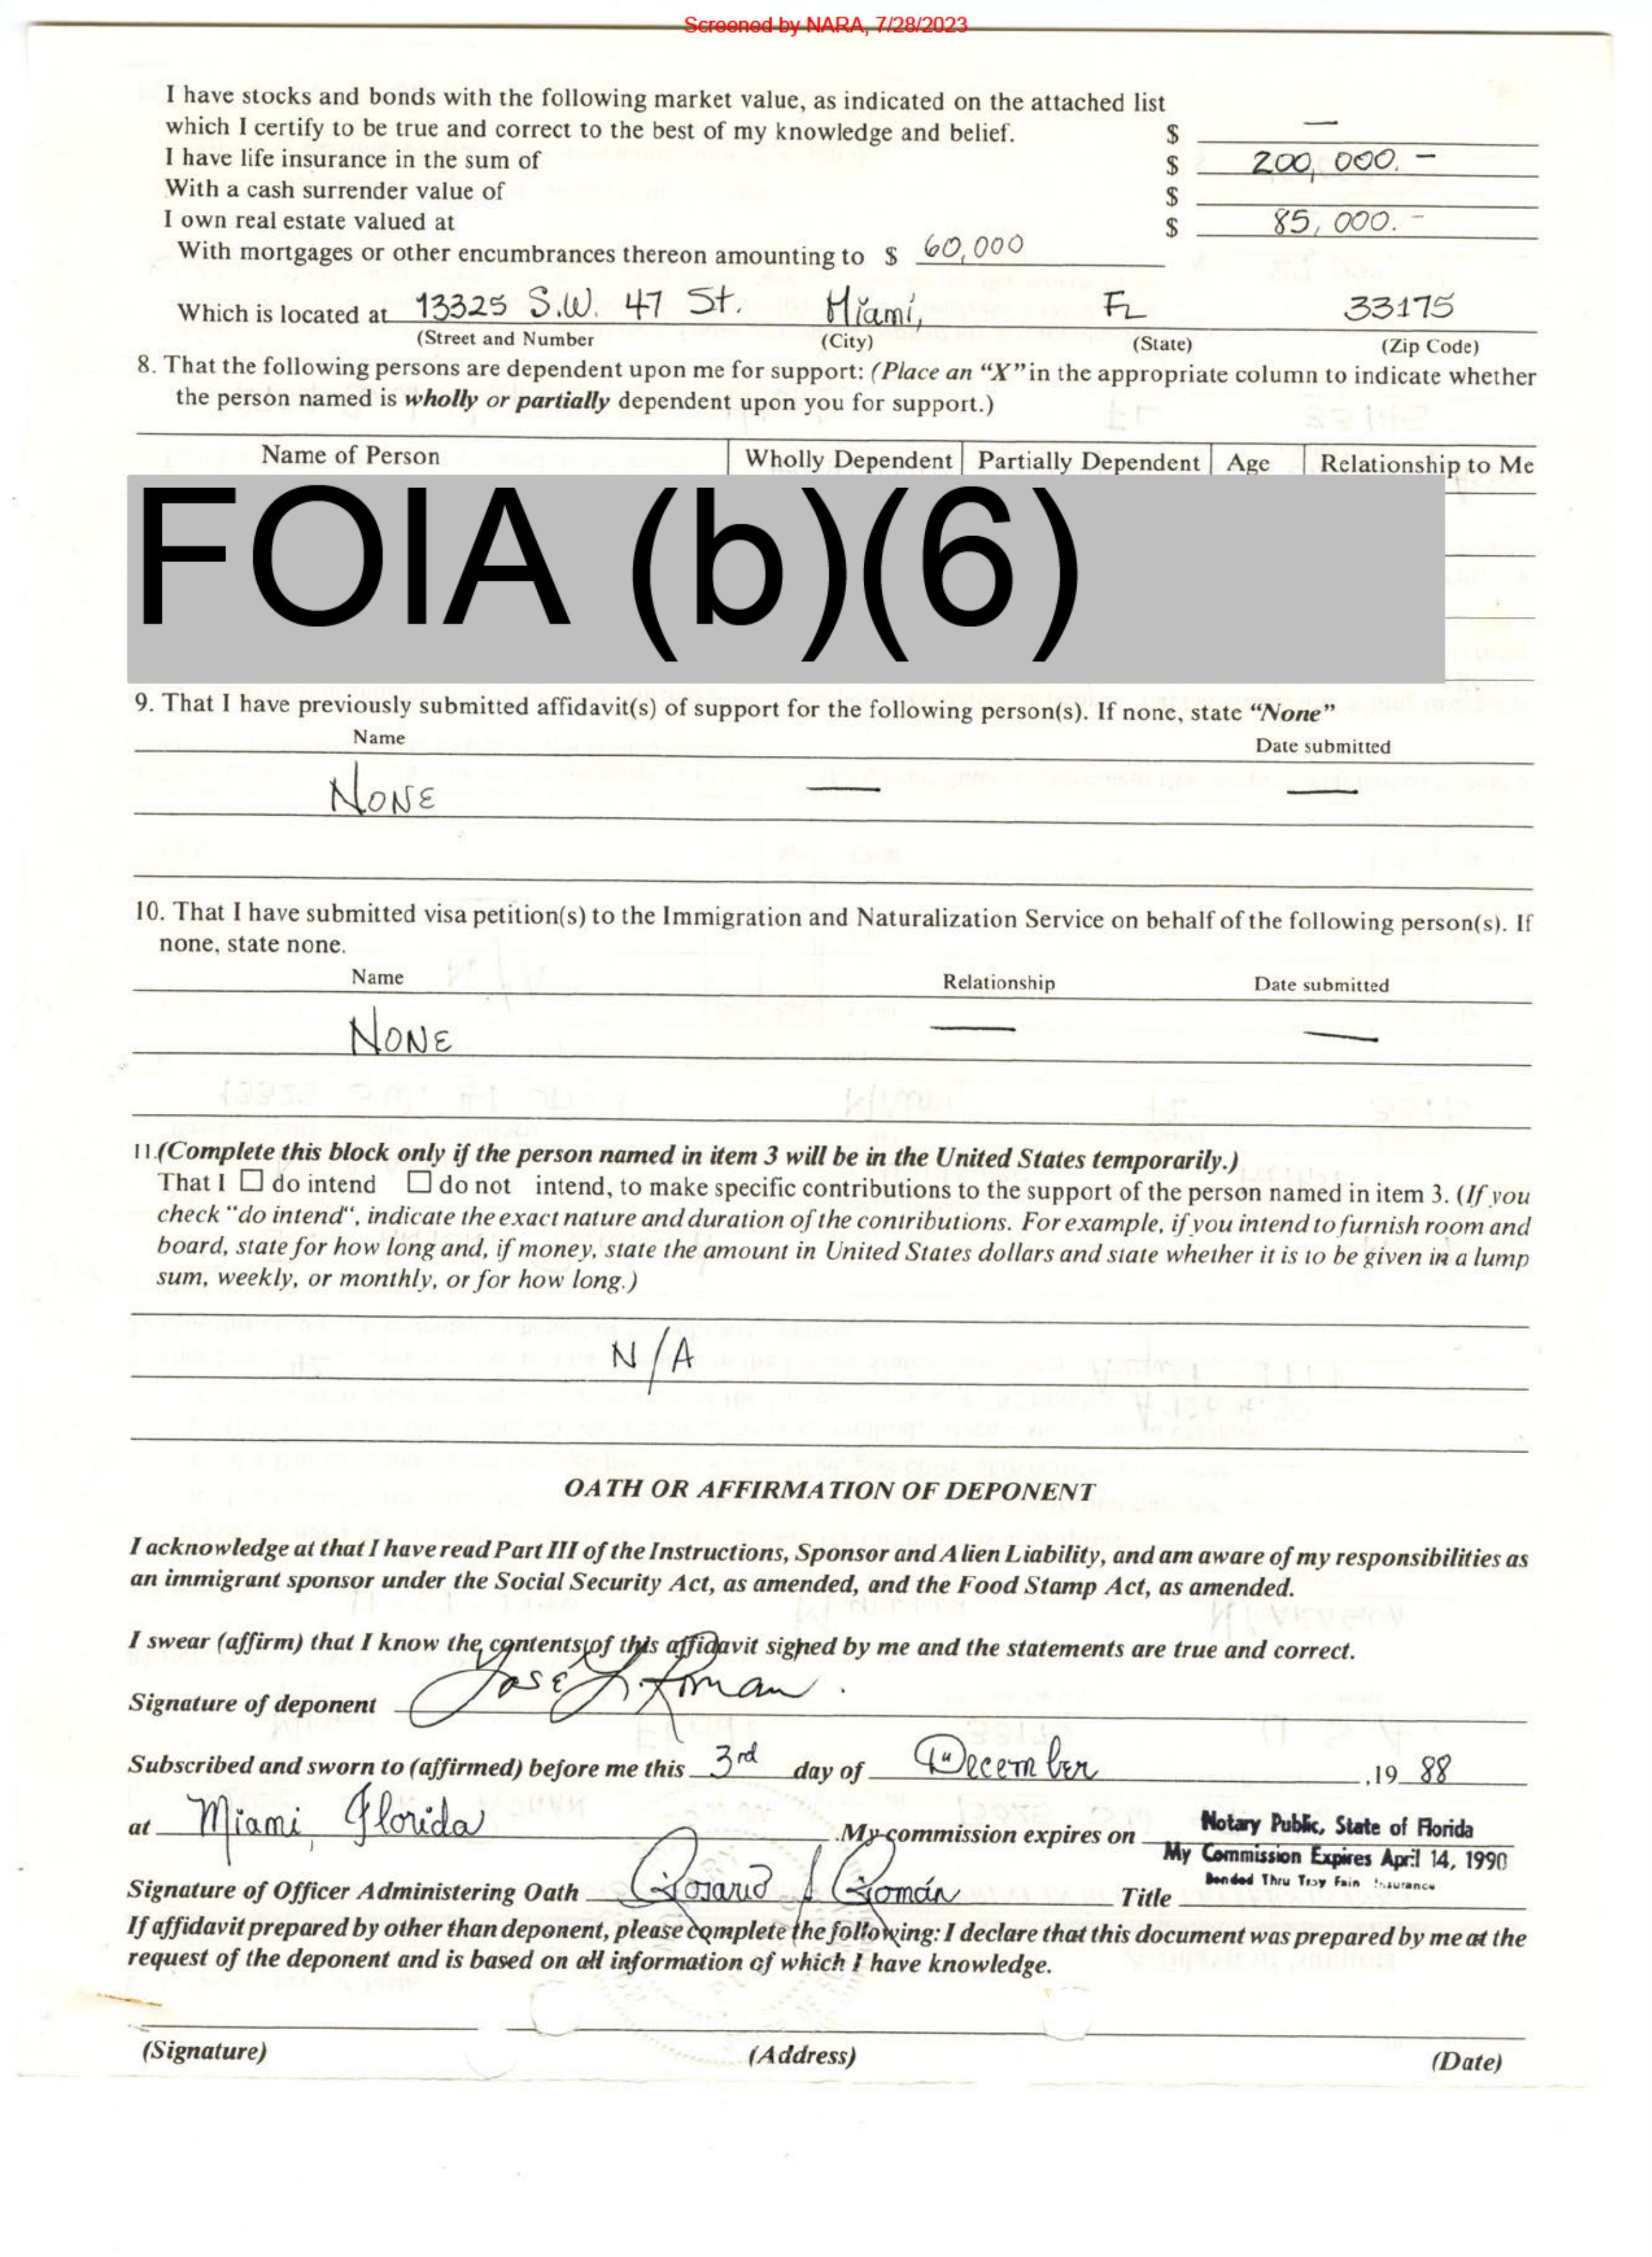 Screened by NARA, 7/28/2023
I have stocks and bonds with the following market value, as indicated on the attached list
which I certify to be true and correct to the best of my knowledge and belief. $ —
I have life insurance in the sum of $ 200,000. –
With a cash surrender value of $
I own real estate valued at $ 85,000. –
With mortgages or other encumbrances thereon amounting to $ 60,000
Which is located at 13325 S.W. 47 St. Miami, FL 33175
(Street and Number (City) (State) (Zip Code)
8. That the following persons are dependent upon me for support: (Place an “X” in the appropriate column to indicate whether
the person named is wholly or partially dependent upon you for support.)
Name of Person Wholly Dependent Partially Dependent Age Relationship to Me
FOIA (b)(6)
9. That I have previously submitted affidavit(s) of support for the following person(s). If none, state “None”
Name Date submitted
NONE — —
10. That I have submitted visa petition(s) to the Immigration and Naturalization Service on behalf of the following person(s). If
none, state none.
Name Relationship Date submitted
NONE — —
11.(Complete this block only if the person named in item 3 will be in the United States temporarily.)
That I ☐ do intend ☐ do not intend, to make specific contributions to the support of the person named in item 3. (If you
check “do intend“, indicate the exact nature and duration of the contributions. For example, if you intend to furnish room and
board, state for how long and, if money, state the amount in United States dollars and state whether it is to be given in a lump
sum, weekly, or monthly, or for how long.)
N/A
OATH OR AFFIRMATION OF DEPONENT
I acknowledge at that I have read Part III of the Instructions, Sponsor and Alien Liability, and am aware of my responsibilities as
an immigrant sponsor under the Social Security Act, as amended, and the Food Stamp Act, as amended.
I swear (affirm) that I know the contents of this affidavit signed by me and the statements are true and correct.
Signature of deponent José L. Roman.
Subscribed and sworn to (affirmed) before me this 3rd day of December ,19 88
at Miami, Florida .My commission expires on Notary Public, State of Florida
My Commission Expires April 14, 1990
Bonded Thru Troy Fain Insurance
Signature of Officer Administering Oath Rosario Román Title
If affidavit prepared by other than deponent, please complete the following: I declare that this document was prepared by me at the
request of the deponent and is based on all information of which I have knowledge.
(Signature) (Address) (Date)